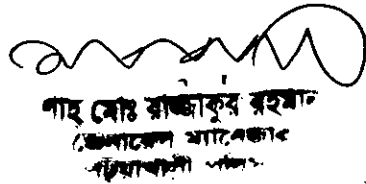 শাহ মোঃ রাজ্জাকুর রহমান
জেনারেল ম্যানেজার
পটুয়াখালী